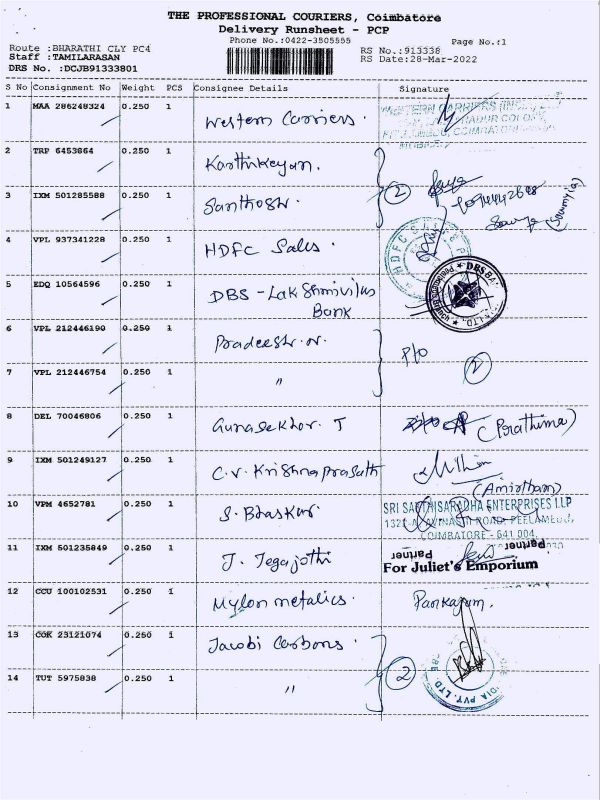 THE PROFESSIONAL COURIERS, Coimbatore
Delivery Runsheet - PCP
Phone No.:0422-3505555
Page No.:1
Route :BHARATHI CLY PC4
RS No.:913338
Staff :TAMILARASAN
RS Date:28-Mar-2022
DRS No. :DCJB91333801
S No Consignment No Weight PCS Consignee Details Signature
1 MAA 286248324 0.250 1 Western Carriers.
2 TRP 6453864 0.250 1 Karthikeyan.
3 IXM 501285588 0.250 1 Santhosh. 2
4 VPL 937341228 0.250 1 HDFC Sales.
5 EDQ 10564596 0.250 1 DBS - Lakshmivilas
Bank
6 VPL 212446190 0.250 1 Pradeesh.N. P/O
7 VPL 212446754 0.250 1 " 2
8 DEL 70046806 0.250 1 Gunasekhar. T (Prathima)
9 IXM 501249127 0.250 1 C.V. Krishnaprasath
(Amirtham)
10 VPM 4652781 0.250 1 S. Bhaskar SRI SAKTHISARADHA ENTERPRISES LLP
AVINASHI ROAD, PEELAMEDU,
COIMBATORE - 641 004.
11 IXM 501235849 0.250 1 J. Jegajothi Partner
For Juliet's Emporium
12 CCU 100102531 0.250 1 Mylon metalics. Pankajam.
13 COK 23121074 0.250 1 Jacobi Carbons.
14 TUT 5975838 0.250 1 " 2